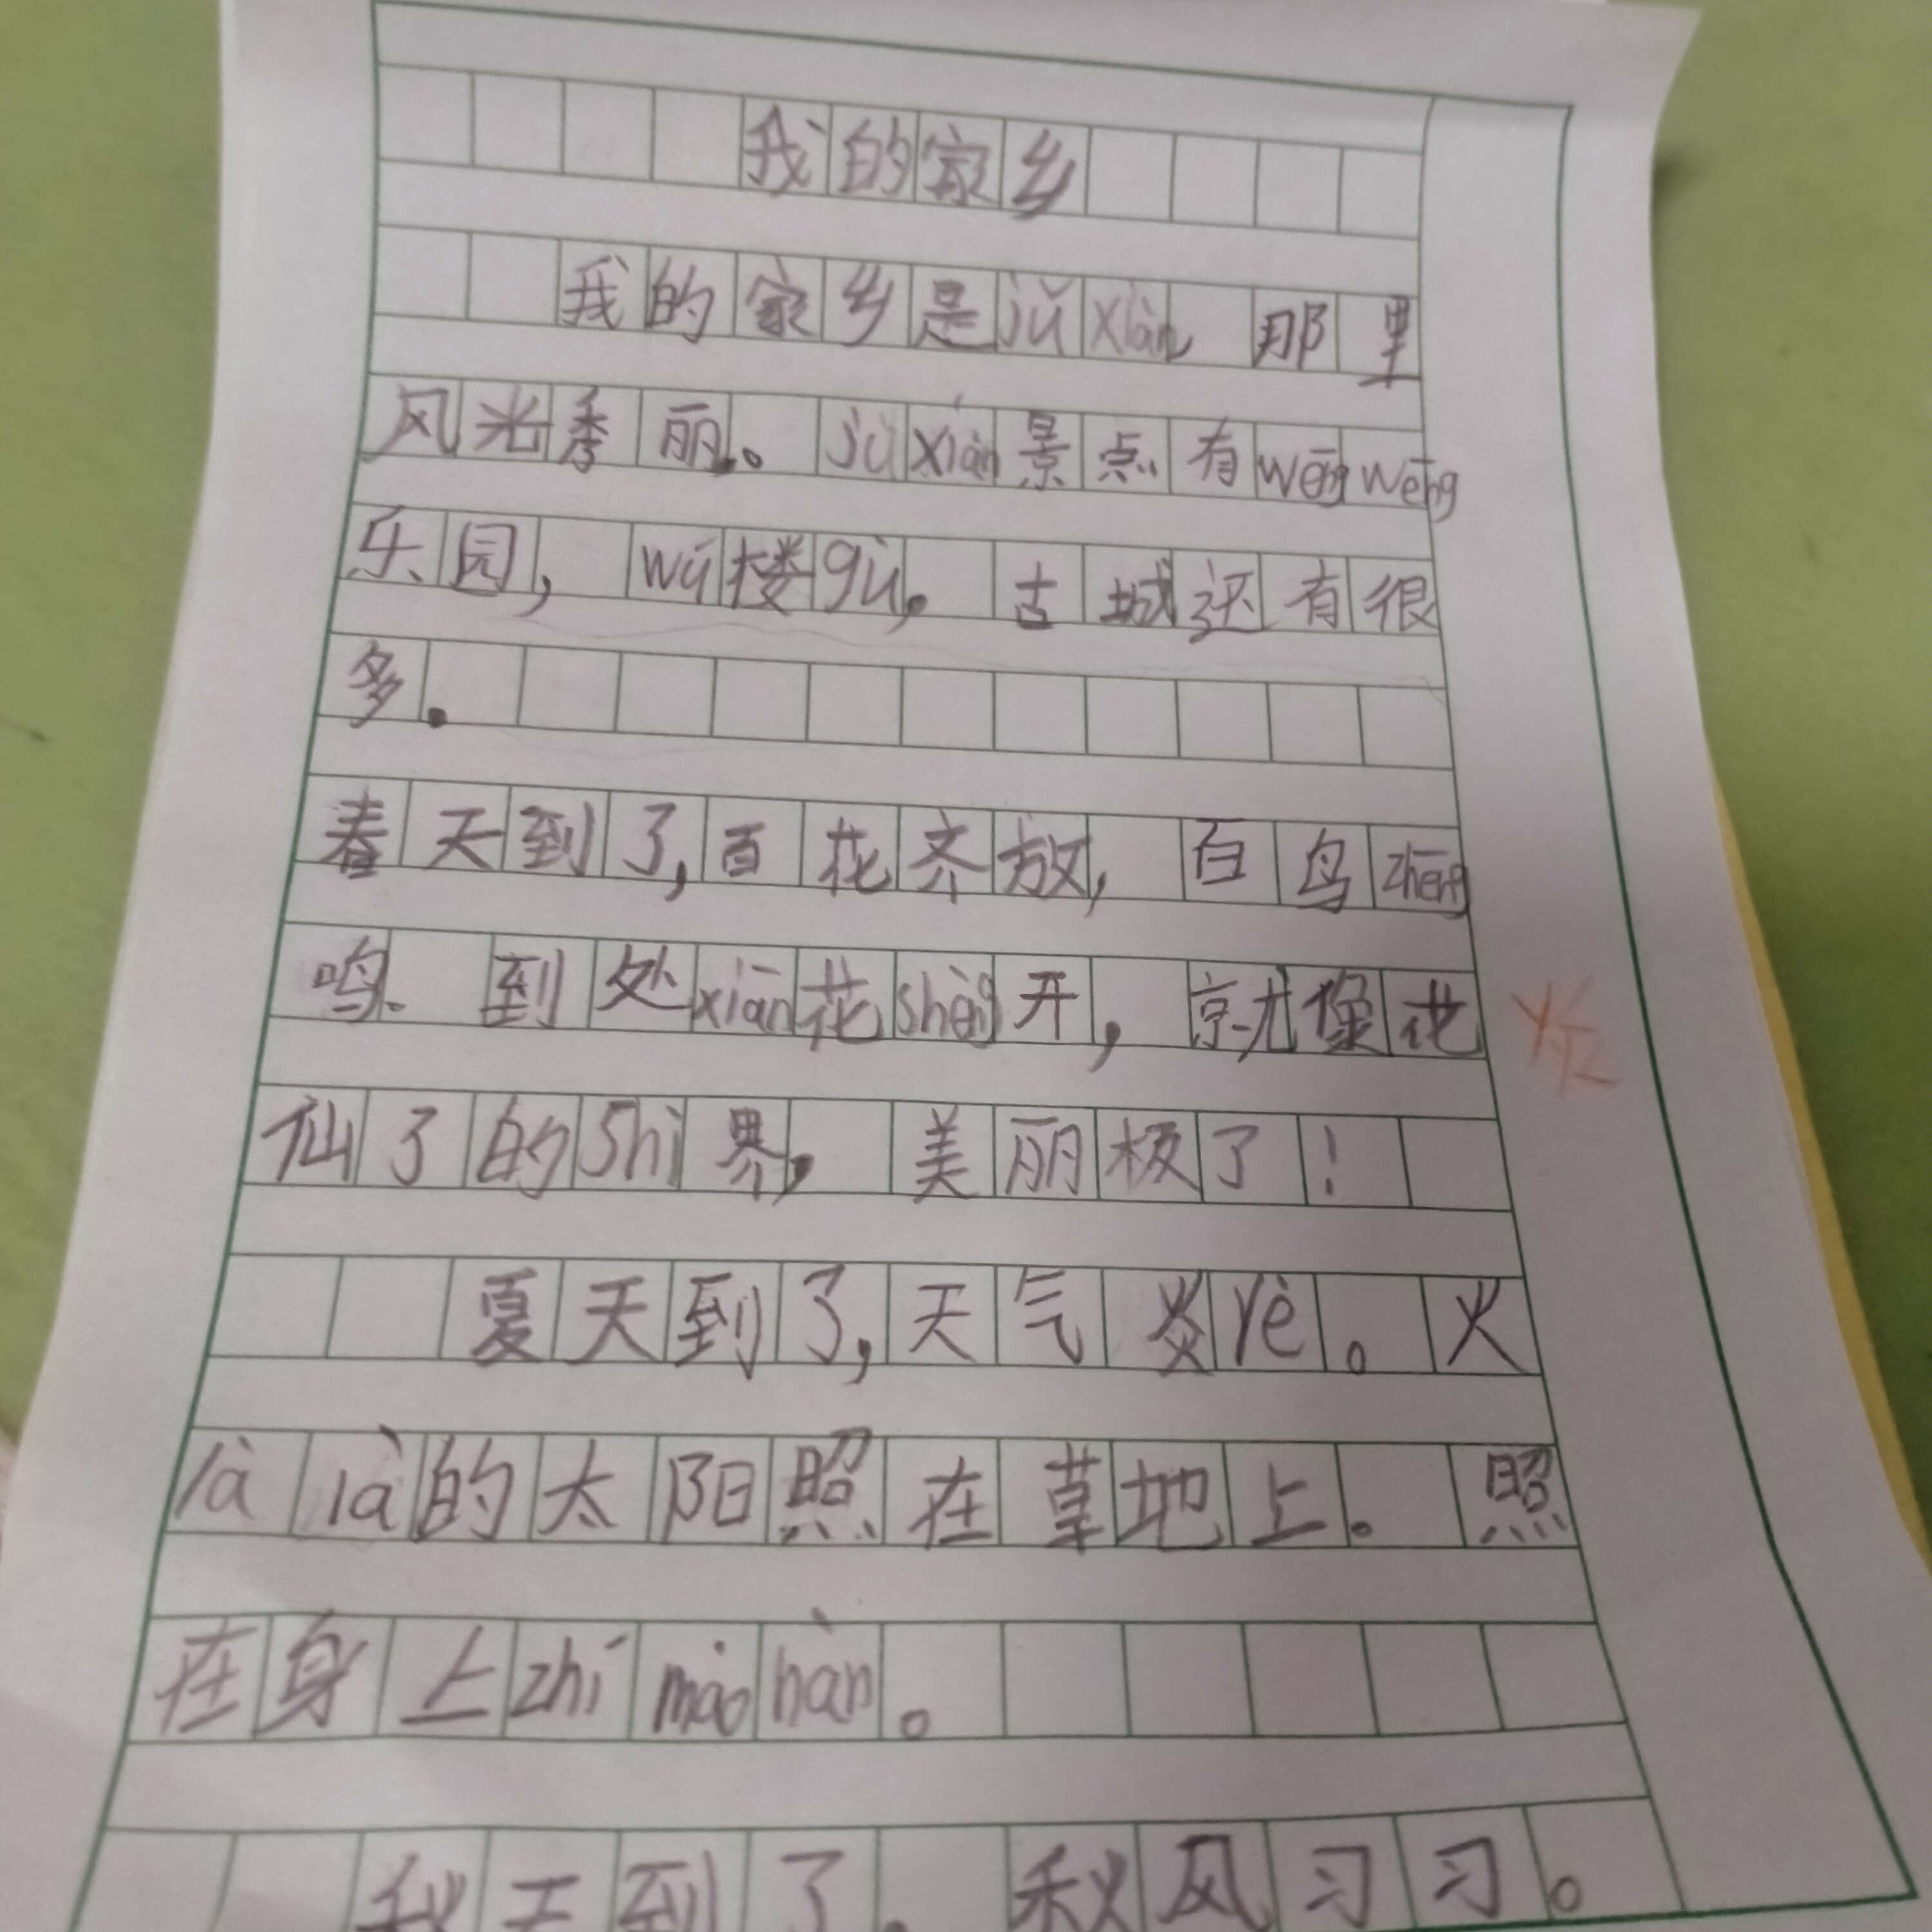 我的家乡
我的家乡是jǔ xiàn 那里
风光秀丽。jǔ xiàn景点有wēng wēng
乐园，wū楼gù。古城还有很
多.
春天到了，百花齐放，百鸟zhēng
鸣、到处xiān花shèng开，就像花
仙子的shì界，美丽极了！
夏天到了，天气炎rè。火
là là的太阳照在草地上。照
在身上zhí mào hàn。
秋天到了，秋风习习。